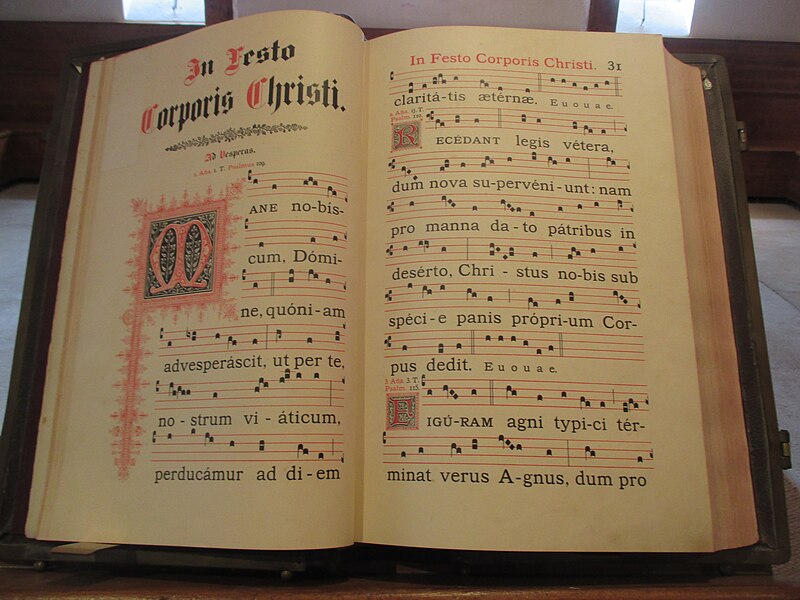 In Festo
Corporis Christi.
Ad Vesperas.
1. Aña. 1. T. Psalmus 109.
MANE no-bis-
cum, Dómi-
ne, quóni-am
advesperáscit, ut per te,
no-strum vi-áticum,
perducámur ad di-em
In Festo Corporis Christi. 31
claritá-tis ætérnæ. Euouae.
2. Aña. ij. T.
Psalm. 110.
RECÉDANT legis vétera,
dum nova su-pervéni-unt: nam
pro manna da-to pátribus in
desérto, Chri-stus no-bis sub
spéci-e panis própri-um Cor-
pus dedit. Euouae.
3. Aña. 3. T.
Psalm. 115.
FIGÚ-RAM agni typi-ci tér-
minat verus A-gnus, dum pro